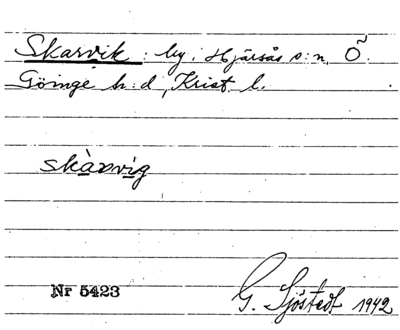 Skarvik : by i Hjärsås s:n, Ö.
Göinge h:d, Krist. l.
skàrvig
Nr 5423
G. Sjöstedt 1942